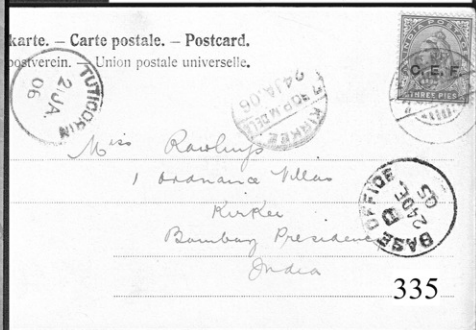 karte. – Carte postale. – Postcard.
postverein. – Union postale universelle.
INDIA POSTAGE
C. E. F.
THREE PIES
TUTICORIN
21 JA
06
KIRKEE
24 JA. 06
BASE OFFICE
B
24 DE.
05
Miss Rawlings
1 Ordnance Villas
Kirkee
Bombay Presidency
India
335